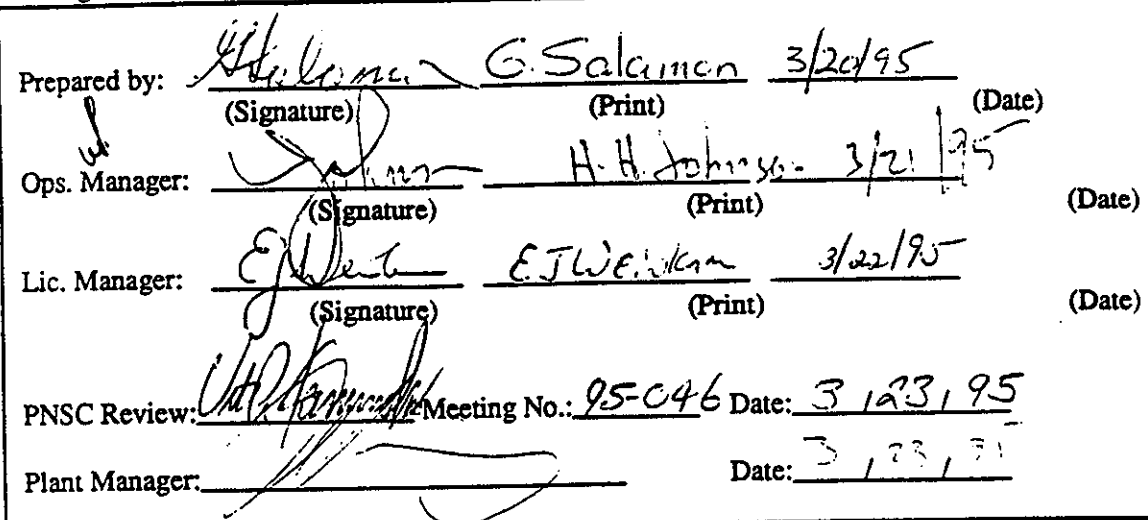 Prepared by: G. Salamon 3/20/95
(Signature) (Print) (Date)
Ops. Manager: H. H. Johnson 3/21/95
(Signature) (Print) (Date)
Lic. Manager: E. J. 3/22/95
(Signature) (Print) (Date)
PNSC Review: Meeting No.: 95-046 Date: 3, 23, 95
Plant Manager: Date: 3, 23, 95